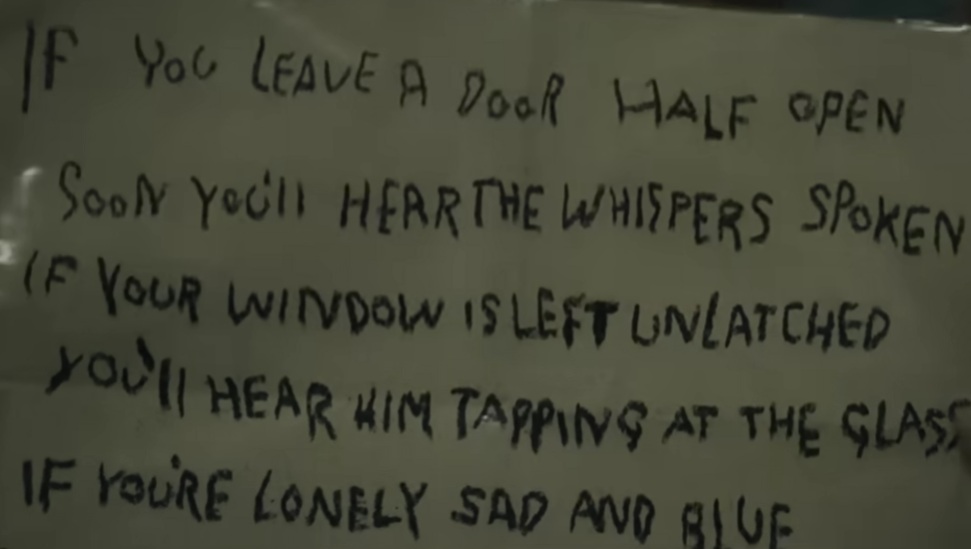 IF YOU LEAVE A DOOR HALF OPEN
SOON YOU'll HEAR THE WHISPERS SPOKEN
IF YOUR WINDOW IS LEFT UNLATCHED
YOU'll HEAR HIM TAPPING AT THE GLASS
IF YOU'RE LONELY SAD AND BLUE